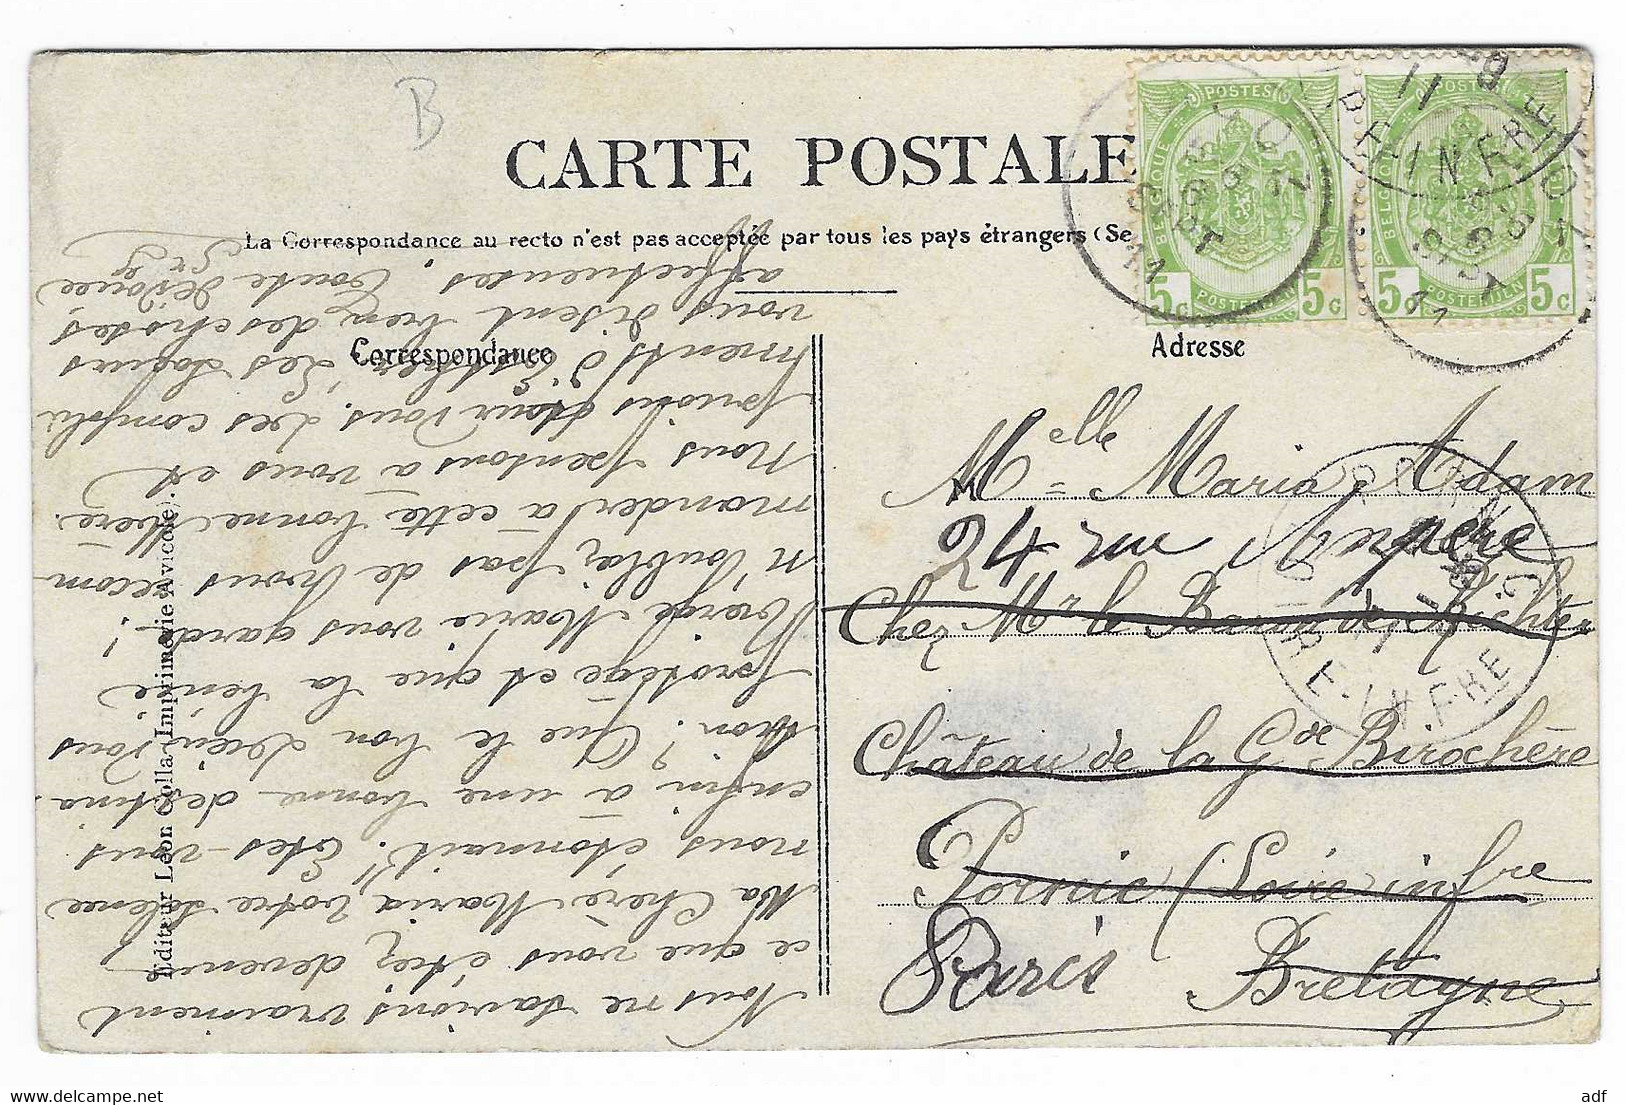 B
CARTE POSTALE
La Correspondance au recto n'est pas acceptée par tous les pays étrangers (Se
Correspondance
Adresse
Nous ne savions vraiment
ce que vous étiez devenue
Ma Chère Maria, votre silence
nous étonnait! Êtes-vous
enfin à une bonne destina-
tion? Que le bon Dieu vous
protège et que la bénie
Vierge Marie vous garde!
N'oubliez pas de nous recom-
mander à cette bonne Mère.
Nous pensons à vous et
prions pour vous. Les compli-
ments d'Esther, Les sœurs
vous disent bien des choses
affectueuses. Toute dévouée
Melle Maria Adam
24 rue Ampère
Chez Mr le Baron de Richter
Château de la Gde Birochère
Pornic (Loire infre
Paris
Bretagne
Editeur Léon Colla, Imprimerie Avicole.
POSTES
BELGIQUE
5 C 5 C
POSTERIJEN
POSTES
BELGIQUE
5 C 5 C
POSTERIJEN
LOIRE-INFRE
delcampe.net
adf